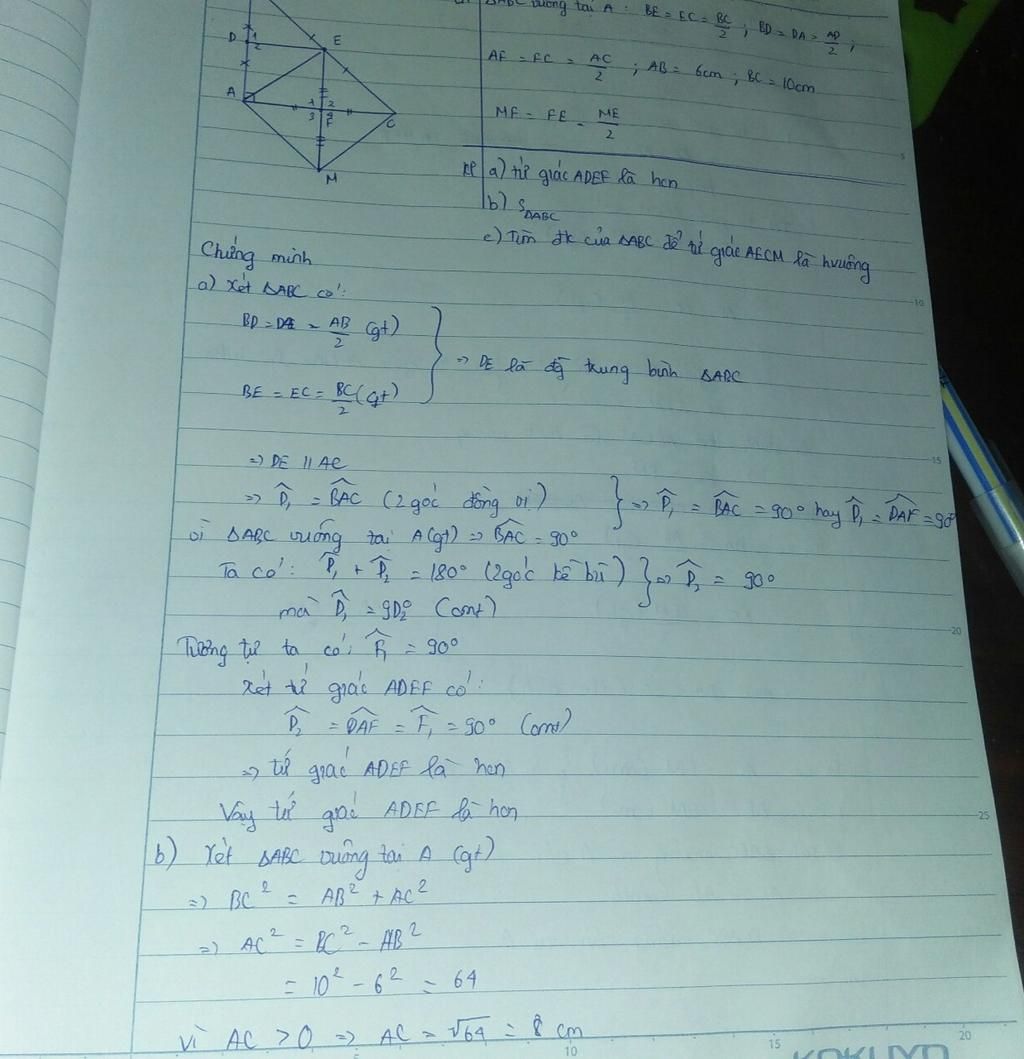 ΔABC vuông tại A : BE = EC = BC/2 ; BD = DA = AD/2 ;
AF = FC = AC/2 ; AB = 6cm ; BC = 10cm
MF = FE = ME/2
D 1 2 E
A 1 2 3 F C
M
KL a) tứ giác ADEF là hcn
b) SΔABC
c) Tìm đk của ΔABC để tứ giác AECM là hvuông
Chứng minh
a) Xét ΔABC có:
BD = DA = AB/2 (gt)
BE = EC = BC/2 (gt)
} => DE là đg trung bình ΔABC
=> DE // AC
=> D̂₁ = BÂC (2 góc đồng vị)
vì ΔABC vuông tại A (gt) => BÂC = 90°
} => D̂₁ = BÂC = 90° hay D̂₁ = DÂF = 90°
Ta có: D̂₁ + D̂₂ = 180° (2 góc kề bù)
mà D̂₁ = 90° (cmt)
} => D̂₂ = 90°
Tương tự ta có: F̂₁ = 90°
Xét tứ giác ADEF có:
D̂₂ = DÂF = F̂₁ = 90° (cmt)
=> tứ giác ADEF là hcn
Vậy tứ giác ADEF là hcn
b) Xét ΔABC vuông tại A (gt)
=> BC² = AB² + AC²
=> AC² = BC² - AB²
= 10² - 6² = 64
Vì AC > 0 => AC = √64 = 8 cm
5
10
15
20
25
10 15 20
KOKUYO